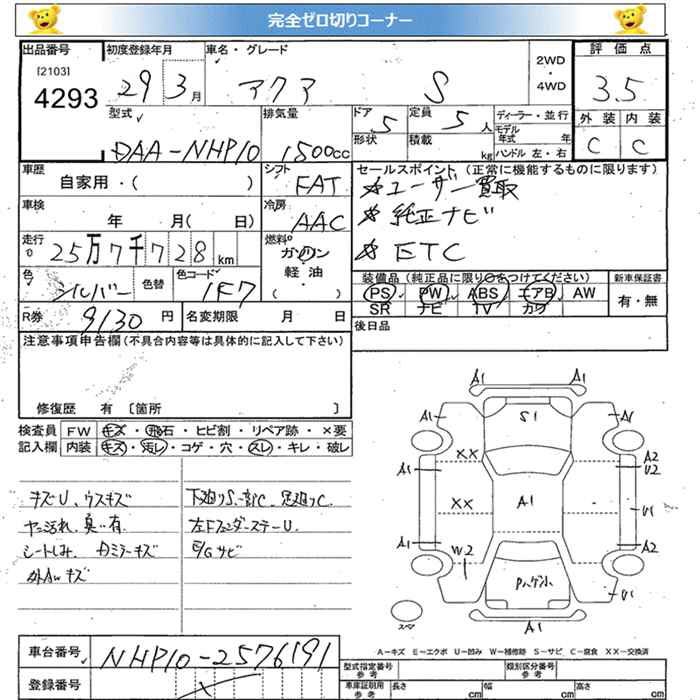 完全ゼロ切りコーナー
出品番号 初度登録年月 車名・グレード 評価点
[2103]
4293
29 3月 アクア S 2WD ・ 4WD 3.5
型式 排気量 ドア 5 定員 5人 ディーラー・並行 外装 内装
DAA-NHP10 1500cc 形状 積載 kg モデル年式 年 C C
ハンドル 左・右
車歴 シフト セールスポイント (正常に機能するものに限ります)
自家用・( ) FAT ☆ユーザー買取
車検 冷房 ☆純正ナビ
年 月( 日) AAC ☆ETC
走行 燃料
25万7千728km ガソリン
軽油
( )
色 シルバー 色替 色コード 1F7
装備品 (純正品に限り○をつけてください) 新車保証書
PS PW ABS エアB AW 有・無
SR ナビ TV カワ
R券 9130円 名変期限 月 日
後日品
注意事項申告欄(不具合内容等は具体的に記入して下さい)
修復歴 有 〔箇所 〕
検査員 FW キズ・飛石・ヒビ割・リペア跡・×要
記入欄 内装 キズ・汚レ・コゲ・穴・スレ・キレ・破レ
キズU、ウスキズ
シートしみ、
外AWキズ
下廻りS一部C、足廻りC.
左FフェンダーステーU.
E/Gサビ
A1
A1 S1 A1
XX A2
A1 U2
XX A1 U1
A1 A2
W2
Pハゲ小 U1
A1
スペア
A－キズ E－エクボ U－凹み W－補修跡 S－サビ C－腐食 XX－交換済
車台番号 NHP10-2576191
登録番号
型式指定番号 参考 類別区分番号 参考
車庫証明用 参考 長さ cm 幅 cm 高さ cm